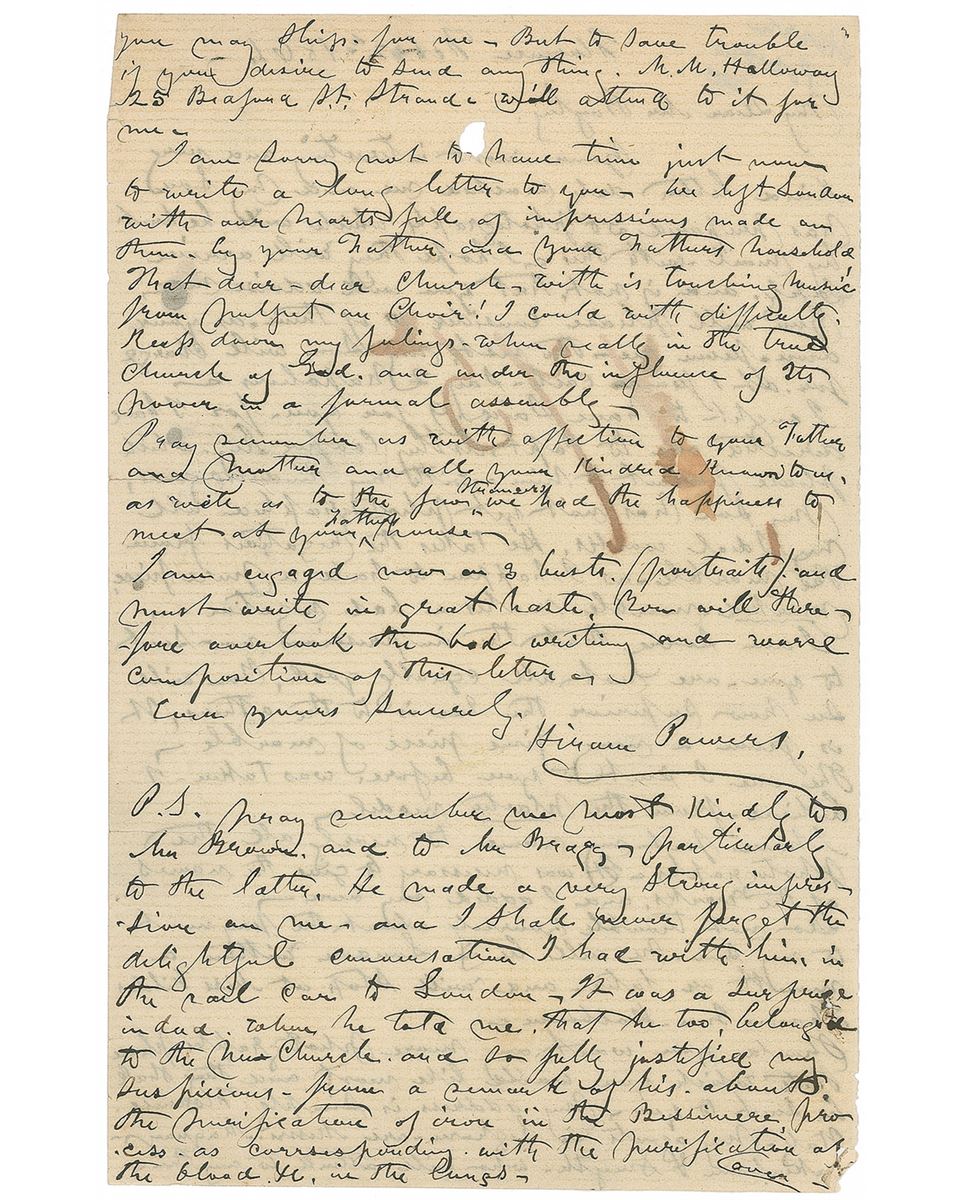 you may ship for me - But to save trouble
if you desire to send anything. M. M. Holloway
25 Bedford St. Strand - will attend to it for
me -
I am sorry not to have time just now
to write a long letter to you - We left London
with our hearts full of impressions made on
them - by your Father. and your Fathers household
That dear - dear Church - with is touching music
from pulpit an Choir! I could with difficulty.
Keep down my feelings - when really in the true
Church of God. and under the influence of Its
power in a formal assembly -
Pray remember us with affection to your Father
and Mother and all your Kindred Known to us.
as well as to the few we had the happiness to
meet at your Fathers house -
I am engaged now on 3 busts. (portraits). and
must write in great haste, You will there-
-fore overlook the bad writing and worse
composition of this letter
Ever yours Sincerely.
Hiram Powers,
P.S. pray remember me most Kindly to
Mr Brown. and to Mr Bragg - particularly
to the latter. He made a very strong impres-
-sion on me - and I shall never forget the
delightful conversation I had with him, in
the rail cars to London - It was a surprise
indeed. when he told me. that he too, belonged
to the New Church. and so fully justified my
suspicions - from a remark of his. about
the purification of iron in the Bessimere, pro
-cess. as corresponding. with the purification of
the blood. &c. in the lungs -
over